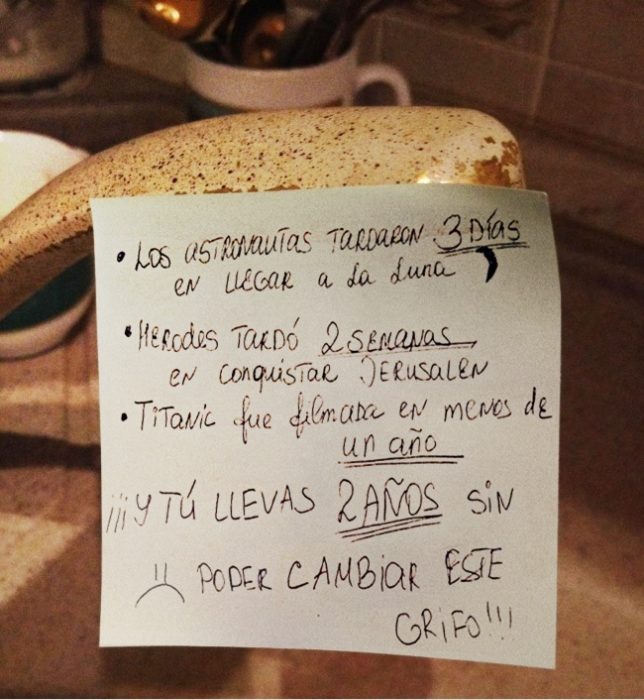 • Los ASTRONAUTAS TARDARON 3 DÍAS
en LLEGAR a La Luna
• HERODES TARDÓ 2 SEMANAS
en conquistar JERUSALEN
• TiTANiC fue filmada en menos de
un año
¡¡¡Y TÚ LLEVAS 2 AÑOS SiN
PODER CAMBiAR ESTE
GRiFO!!!